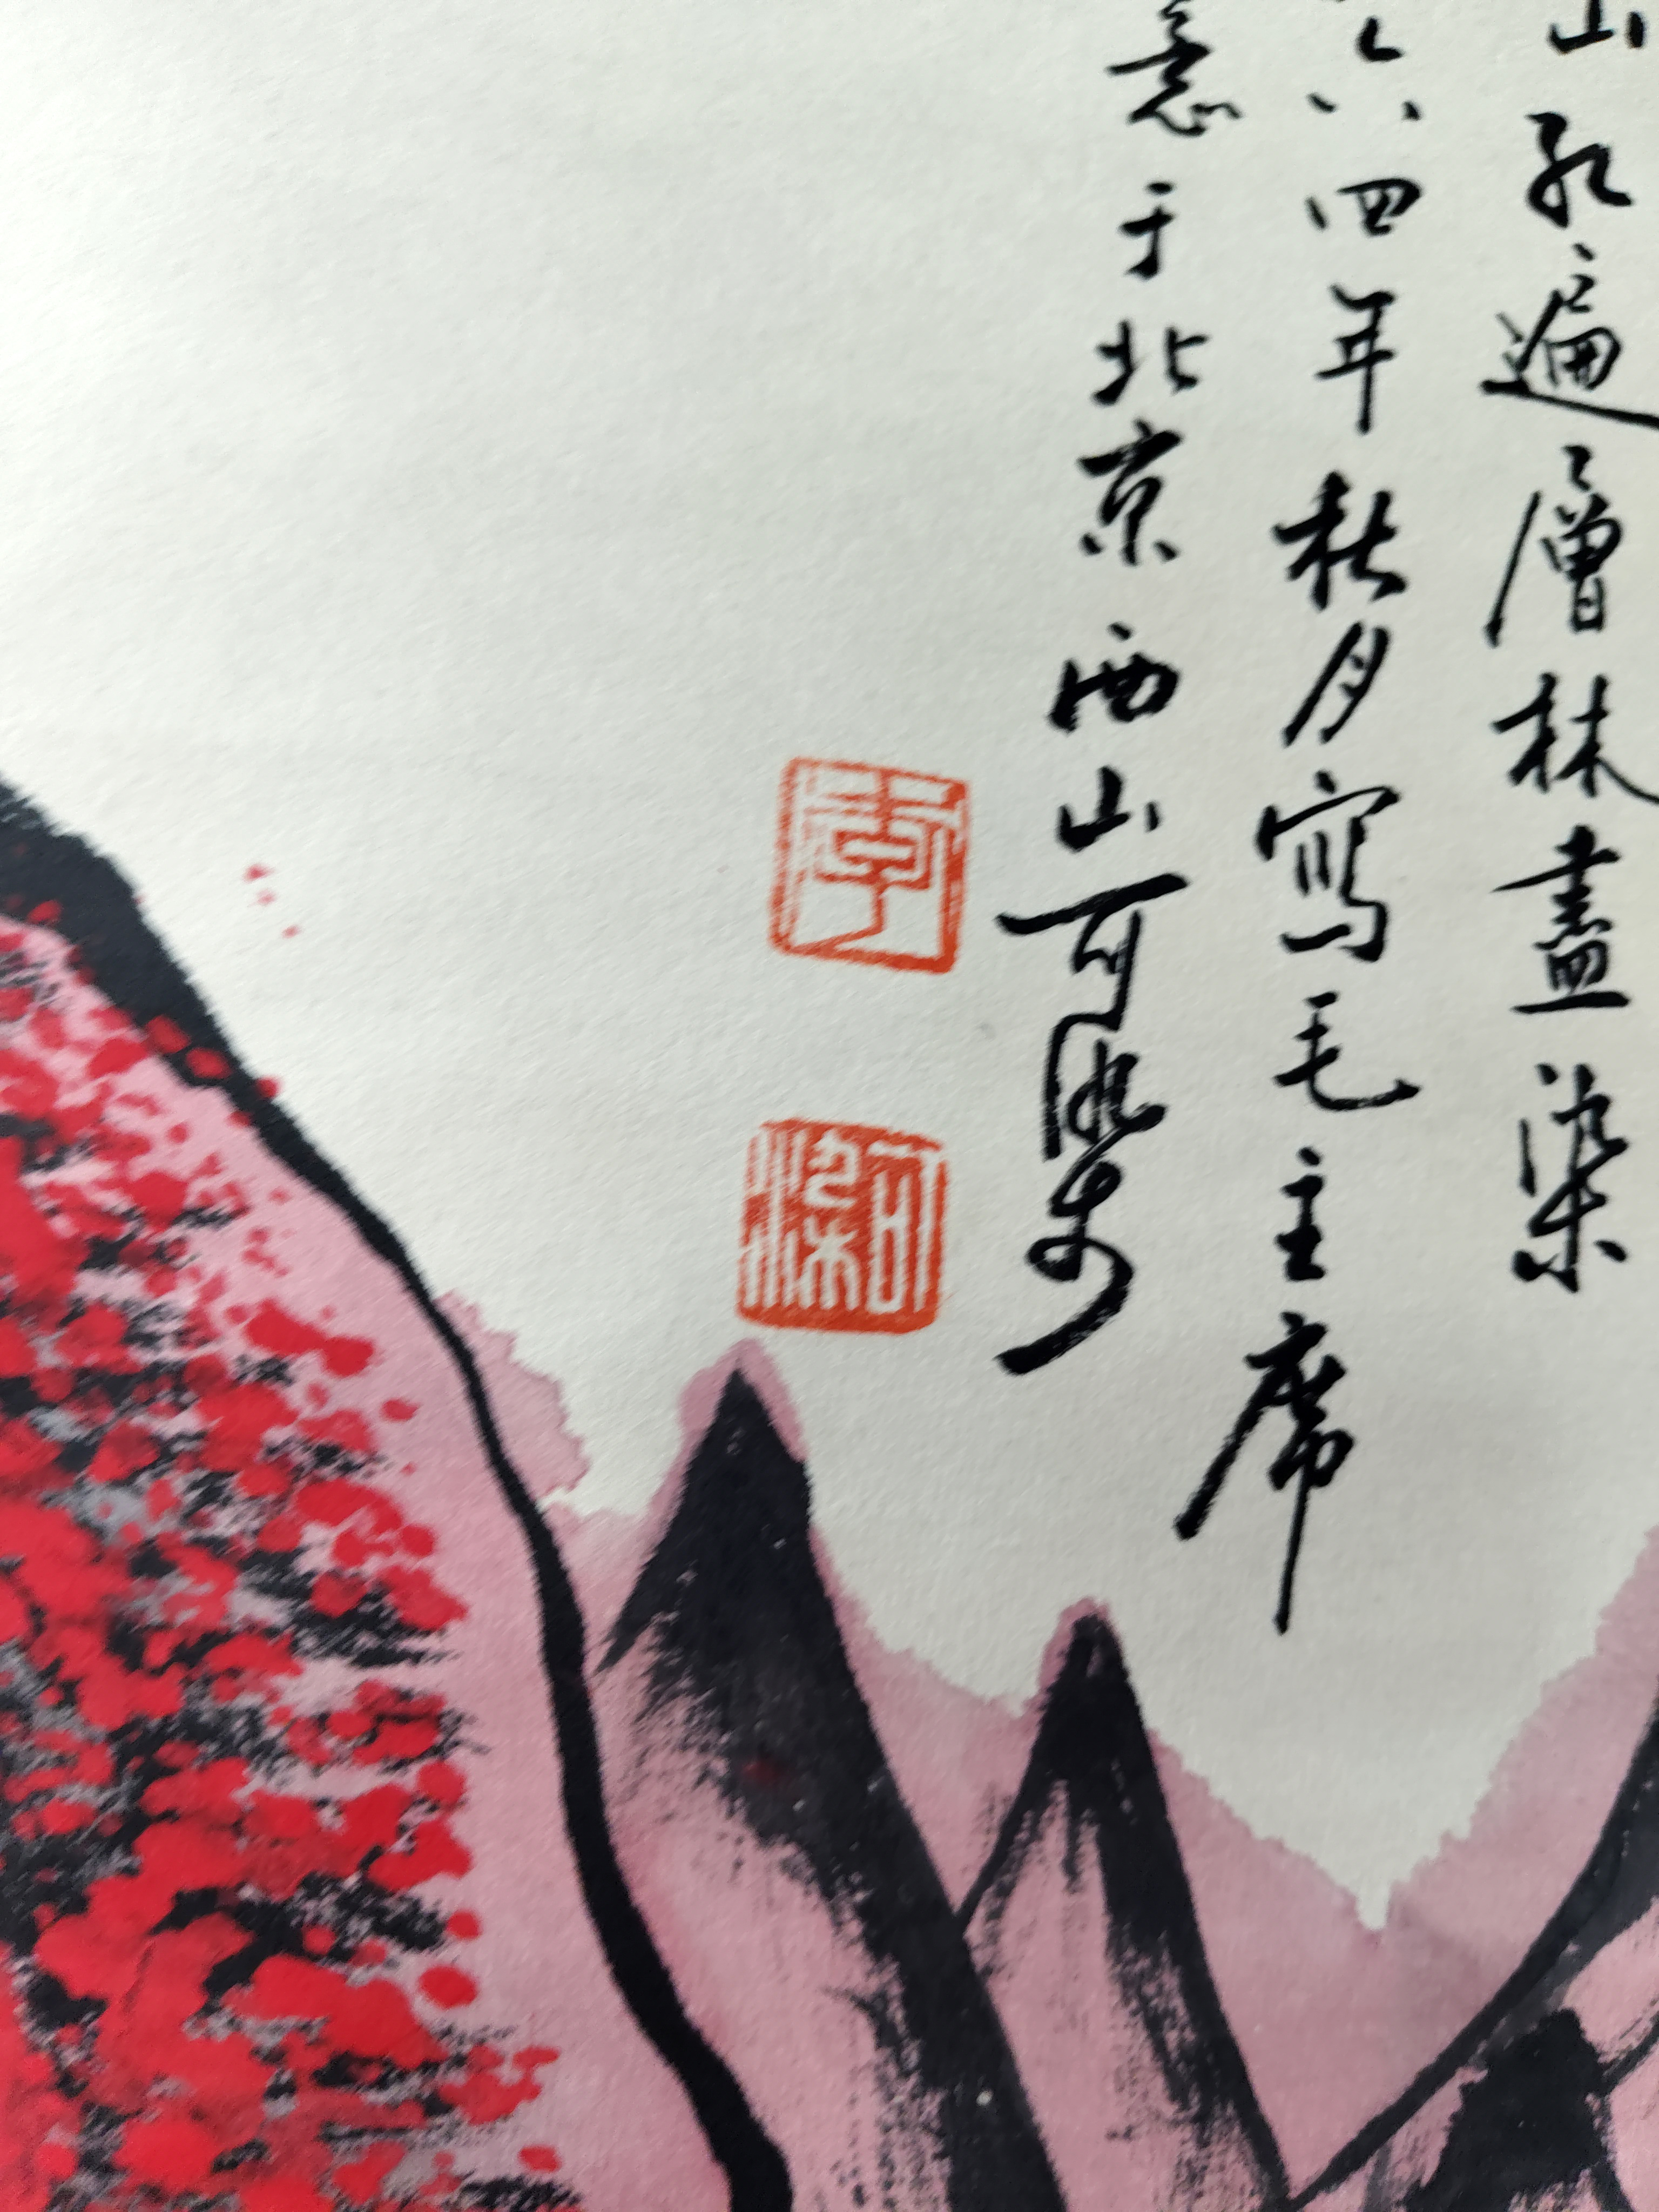 山紅遍層林盡染
六四年秋月寫毛主席
意于北京西山可染
李
可染